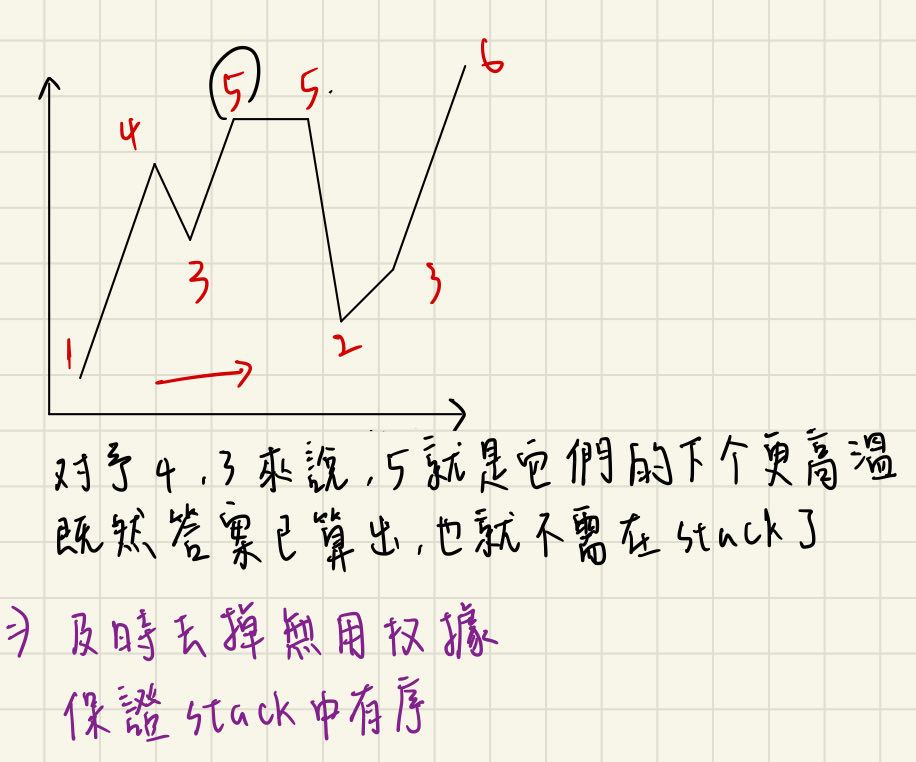 6
5 5.
4
3
3
2
1
对于4,3來說,5就是它們的下个更高溫
既然答案已算出,也就不需在stack了
⇒ 及時去掉無用权據
保證stack中有序